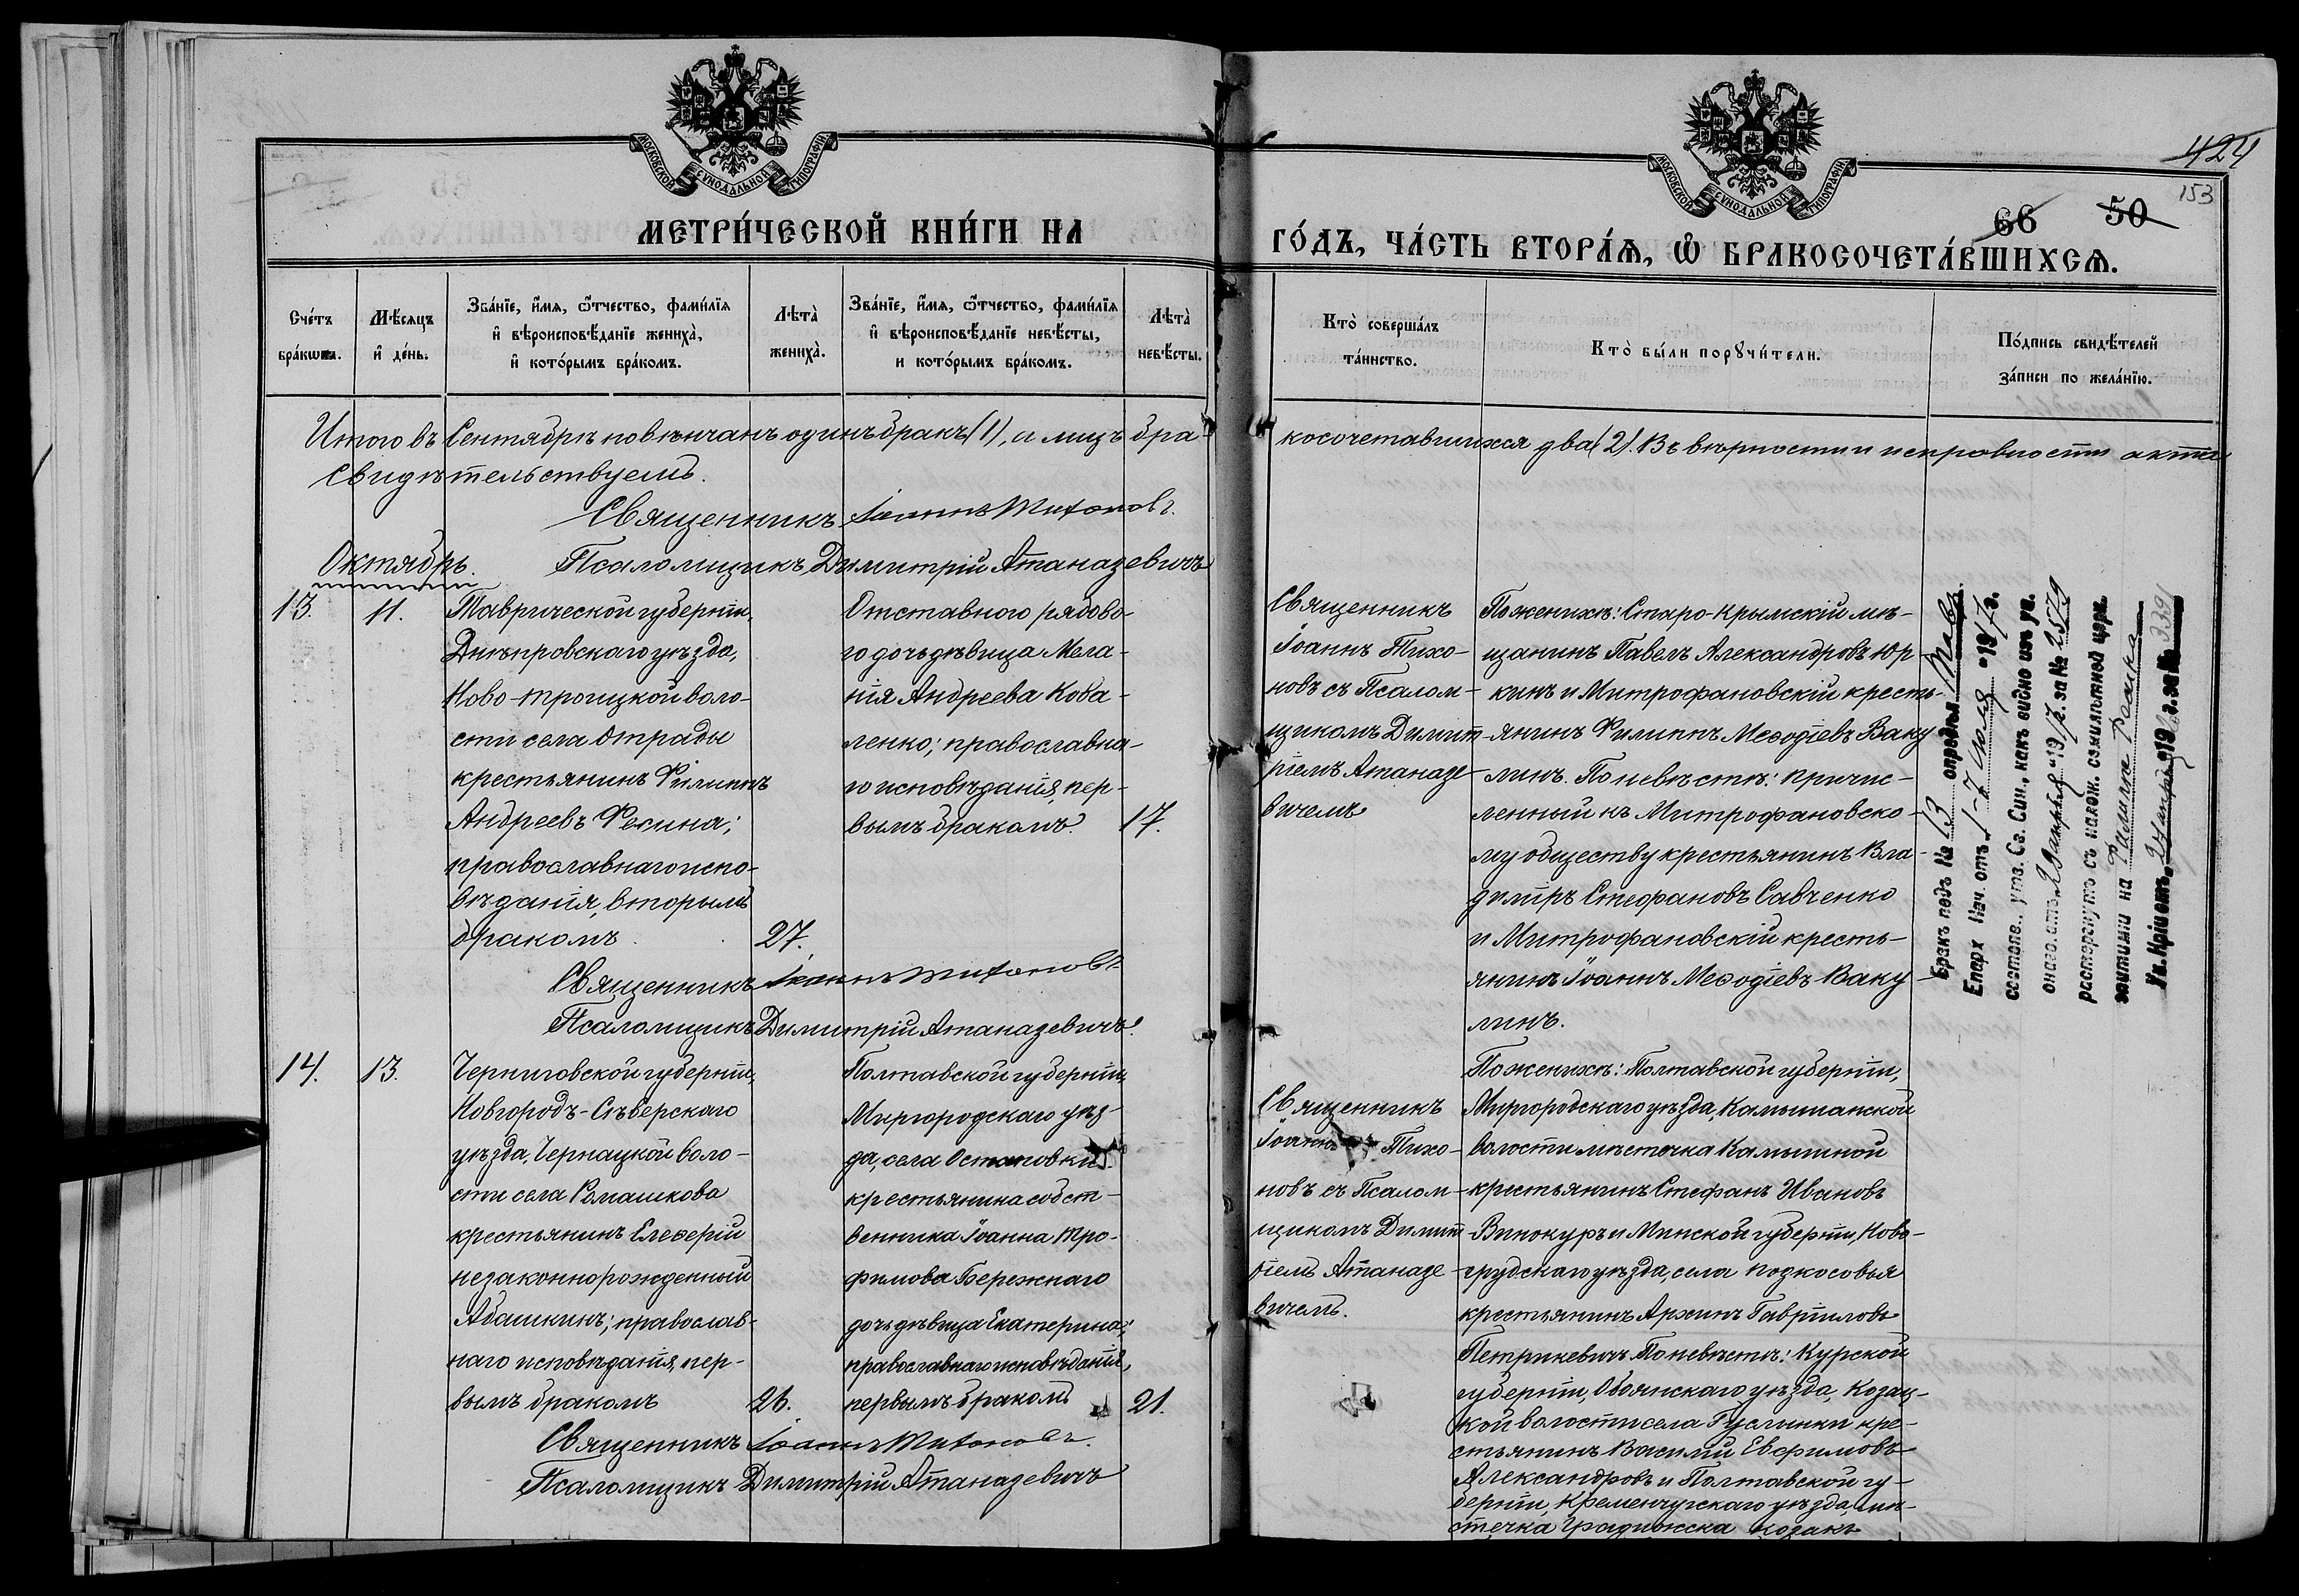 424
153
66 50
МОСКОВСКОЙ СУНОДАЛЬНОЙ ТИПОГРАФІИ
МОСКОВСКОЙ СУНОДАЛЬНОЙ ТИПОГРАФІИ
МЕТРИ́ЧЕСКОЙ КНИ́ГИ НА
ГО́ДЪ, ЧА́СТЬ ВТОРА́Ѧ, Ѽ БРАКОСОЧЕТА́ВШИХСѦ.
Сче́тъ
бра́кωвъ.
Мѣ́сяцъ
и҆ де́нь.
Зва́нїе, и҆́мя, ѻ҆́тчество, фамиліѧ
и҆ вѣроисповѣ́данїе жениха̀,
и҆ кото́рымъ бра́комъ.
Лѣта̀
жениха̀.
Зва́нїе, и҆́мя, ѻ҆́тчество, фамиліѧ
и҆ вѣроисповѣ́данїе невѣ́сты,
и кото́рымъ бра́комъ.
Лѣта̀
невѣ́сты.
Кто̀ соверша́лъ
та́инство.
Кто̀ бы́ли порꙋчи́тели.
По́дпись свидѣ́телей
за́писи по жела́нїю.
Итого въ Сентябрѣ повѣнчанъ одинъ бракъ (1), а лицъ бра-
косочетавшихся два (2). Въ вѣрности и исправности акта
свидѣтельствуемъ.
Священникъ Іоаннъ Тихоновъ.
Псаломщикъ Димитрій Атаназевичъ
Октябрь.
13.
11.
Таврической губерніи,
Днѣпровскаго уѣзда,
Ново-троицкой воло-
сти села Отрады
крестьянинъ Филиппъ
Андреевъ Фесина;
православнаго испо-
вѣданія, вторымъ
бракомъ.
27.
Отставного рядово-
го дочь дѣвица Мела-
нія Андреева Кова-
ленко; православна-
го исповѣданія, пер-
вымъ бракомъ.
17.
Священникъ
Іоаннъ Тихо-
новъ съ Псалом-
щикомъ Димит-
ріемъ Атаназе-
вичемъ
По женихѣ: Старо-Крымскій мѣ-
щанинъ Павелъ Александровъ Юр-
кинъ и Митрофановскій кресть-
янинъ Филиппъ Меѳодіевъ Ваку-
линъ. По невѣстѣ: причис-
ленный къ Митрофановско-
му обществу крестьянинъ Вла-
диміръ Стефановъ Савченко
и Митрофановскій кресть-
янинъ Іоаннъ Меѳодіевъ Ваку-
линъ.
Бракъ подъ № 13 опредѣл. Тавр.
Епарх Нач. отъ 1-7 юля "1917 г.
состояв. утв. Св. Син., какъ видно изъ ук.
онаго. отъ 1917 г. за № 2579
расторгнутъ съ
на
339
Священникъ Іоаннъ Тихоновъ
Псаломщикъ Димитрій Атаназевичъ.
14.
13.
Черниговской губерніи,
Новгородъ-Сѣверскаго
уѣзда, Чернацкой воло-
сти села Ромашкова
крестьянинъ Елеѳерій
незаконнорожденный
Абашкинъ; православ-
наго исповѣданія, пер-
вымъ бракомъ
26.
Полтавской губерніи,
Миргородскаго уѣз-
да, села Остаповки
крестьянина собст-
венника Іоанна Тро-
фимова Бережнаго
дочь дѣвица Екатерина;
православнаго исповѣданія,
первымъ бракомъ
21.
Священникъ
Іоаннъ Тихо-
новъ съ Псалом-
щикомъ Димит-
ріемъ Атаназе-
вичемъ.
По женихѣ: Полтавской губерніи,
Миргородскаго уѣзда, Камышанской
волости мѣстечка Камышной
крестьянинъ Стефанъ Ивановъ
Винокуръ и Минской губерніи, Ново-
грудскаго уѣзда, села Подкосовья
крестьянинъ Архипъ Гавріиловъ
Петрикевичъ. По невѣстѣ: Курской
губерніи, Обоянскаго уѣзда, Козац-
кой волости села Гуслинки кре-
стьянинъ Василій Евфимовъ
Александровъ и Полтавской гу-
берніи, Кременчугскаго уѣзда, мѣ-
стечка Градижска козакъ
Священникъ Іоаннъ Тихоновъ.
Псаломщикъ Димитрій Атаназевичъ